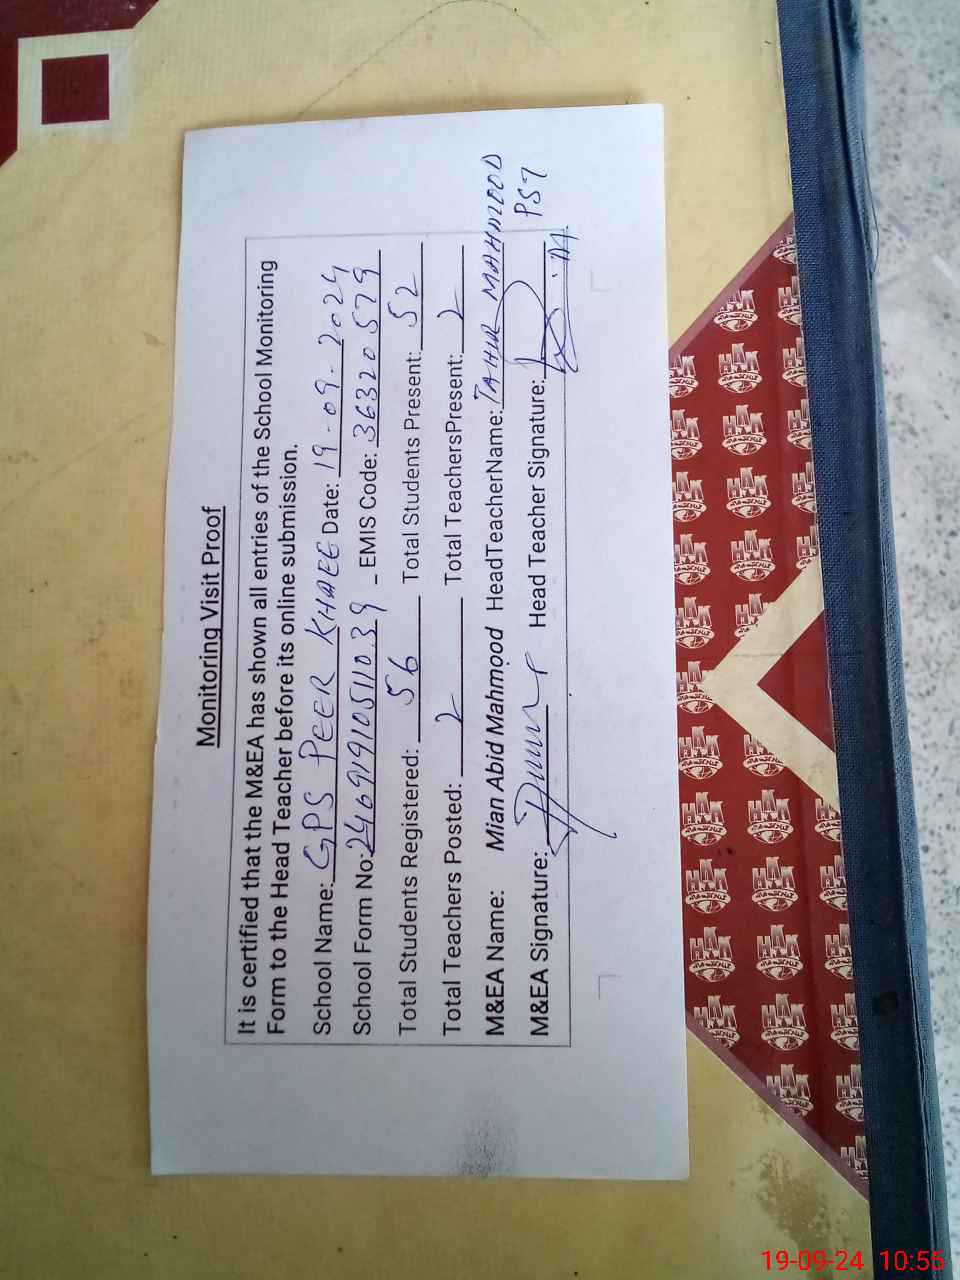 Monitoring Visit Proof
It is certified that the M&EA has shown all entries of the School Monitoring
Form to the Head Teacher before its online submission.
School Name: GPS PEER KHAEE Date: 19-09-2024
School Form No: 24691910511039 EMIS Code: 36320579
Total Students Registered: 56 Total Students Present: 52
Total Teachers Posted: 2 Total TeachersPresent: 2
M&EA Name: Mian Abid Mahmood HeadTeacherName: TAHIR MAHMOOD
M&EA Signature: Head Teacher Signature: PST
HAK
19-09-24 10:55